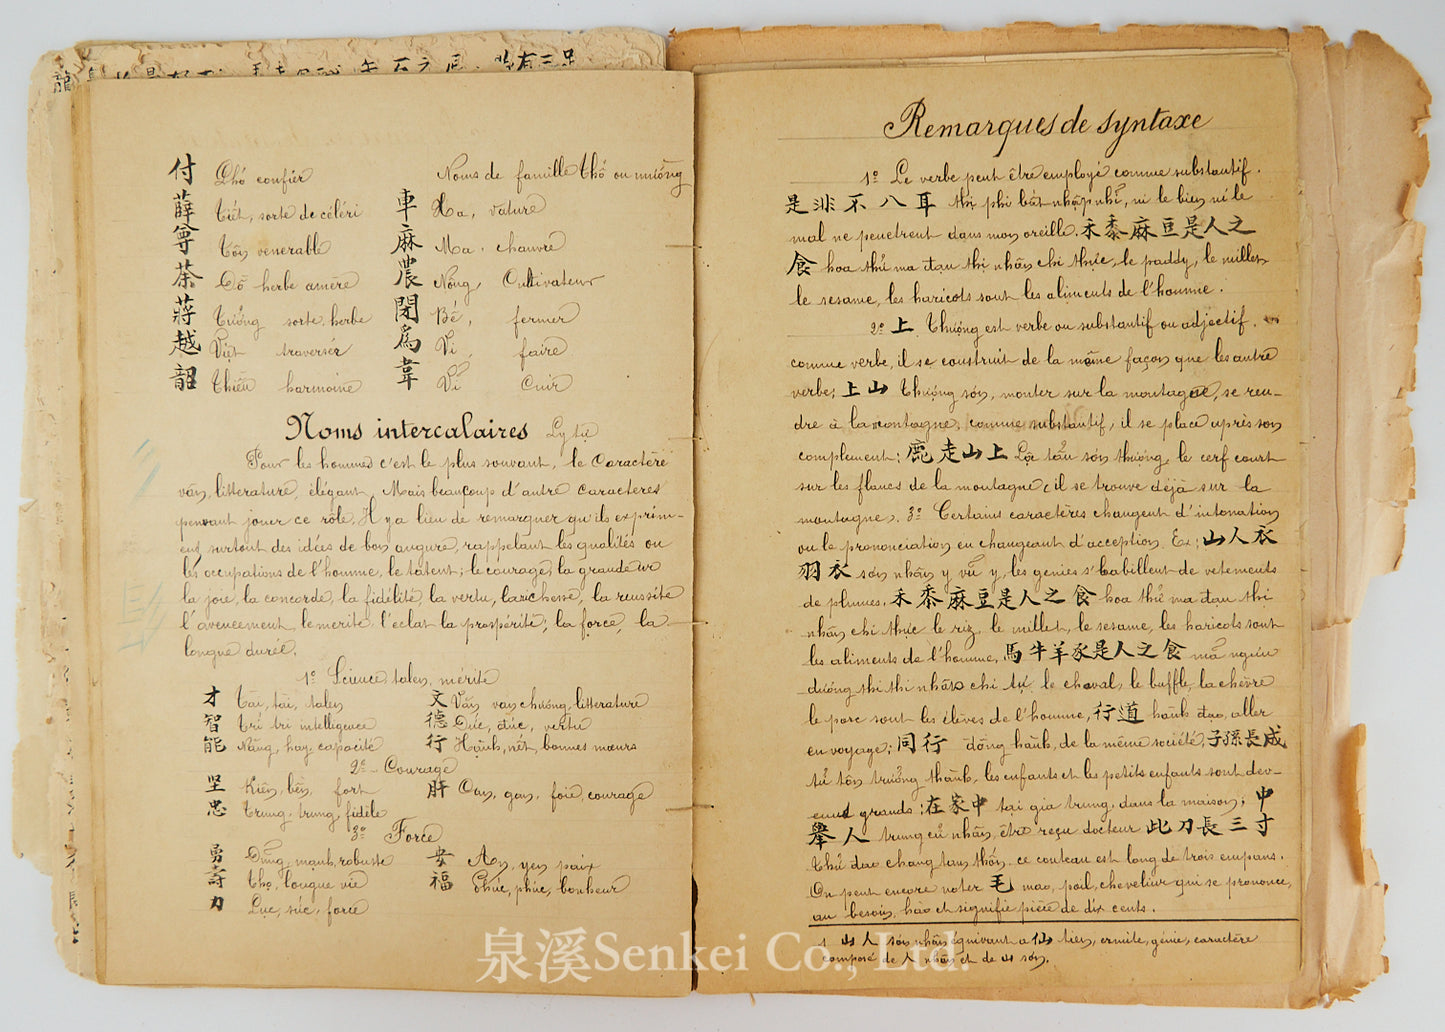 付 Phó confier
薛 Tiết, sorte de céléri
尊 Tôn venerable
荼 Đồ herbe amère
蔣 Tưởng sorte herbe
越 Việt traverser
韶 Thiều harmonie
Noms de famille Thổ ou mường
車 Xa, voiture
麻 Ma, chanvre
農 Nông, Cultivateur
閉 Bế, fermer
爲 Vi, faire
韋 Vi Cuir
Noms intercalaires Ly tự
Pour les hommes c'est le plus souvant, le Caractère
văn, litterature, élégant. Mais beaucoup d'autre caracteres
peuvant jouer ce rôle. Il y a lieu de remarquer qu'ils exprim-
ent surtout des idées de bon augure, rappelant les qualités ou
les occupations de l'homme, le talent; le courage, la grandeur
la joie, la concorde, la fidélité, la vertu, la richesse, la reussite
l'avencement, le merite l'eclat la prospérité, la force, la
longue durée.
1º Science talen, mérite
才 Tài, tài, talen
智 Trí trí intelligence
能 Năng, hay, capacité
文 Văn van chương, litterature
德 Đức, đức, vertu
行 Hạnh, nết, bonnes mœurs
2º - Courage
坚 Kiên, bền, fort
忠 Trung, trung, fidèle
肝 Can, gan, foie, courage
3º Force
勇 Dũng, mạnh, robuste
壽 Thọ, longue vie
力 Lực, sức, force
安 An, yen, paix
福 Phúc, phúc, bonheur
Remarques de syntaxe
1º Le verbe peut être employé comme substantif.
是非不入耳 thị phi bất nhập nhĩ, ni le bien ni le
mal ne penetrent dans mon oreille. 禾黍麻豆是人之
食 hoa thử ma đạu thị nhân chi thực, le paddy, le millet,
le sesame, les haricots sont les aliments de l'homme.
2º 上 Thượng est verbe ou substantif ou adjectif.
comme verbe, il se construit de la même façon que les autre
verbe; 上山 thượng sơn, monter sur la montagne, se ren-
dre à la montagne; comme substantif, il se place après son
complement; 鹿走山上 Lộc tẩu sơn thượng, le cerf court
sur les flancs de la montagne (il se trouve déjà sur la
montagne). 3º Certains caractères changent d'intonation
ou le prononciation en changeant d'acception. Ex: 山人衣
羽衣 sơn nhân y vũ y, les genies s'habillent de vetements
de plumes. 禾黍麻豆是人之食 hoa thử ma đau thi
nhân chi thưc le riz, le millet, le sesame, les haricots sont
les aliments de l'homme, 馬牛羊豕是人之食 mã ngưu
dương thi thi nhân chi tự le cheval, le buffle, la chèvre
le porc sont les élèves de l'homme, 行道 hành đạo, aller
en voyage; 同行 đồng hành, de la même société; 子孫長成
tử tôn trưởng thành, les enfants et les petits enfants sont dev-
enus grands; 在家中 tại gia trung, dans la maison; 中
舉人 trung cử nhân, être reçu docteur 此刀長三寸
Thử đao chang tam thốn, ce couteau est long de trois empans.
On peut encore noter 毛 mao, poil, cheveliur qui se prononce,
au besoin, hào et signifie pièce de dix cents.
1. 山人 sơn nhân équivaut a 仙 tien, ermite, génie, caractère
composé de 人 nhân et de 山 sơn.
泉溪Senkei Co., Ltd.